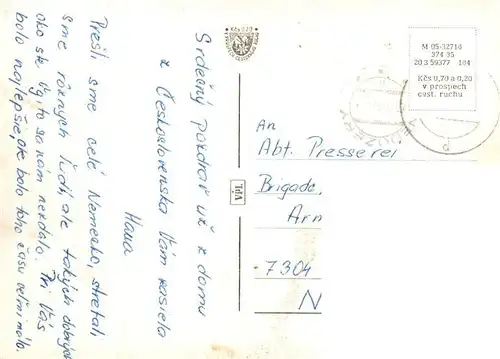 Srdečný pozdrav už z domu
z Československa Vám zasiela
Hana
Prešli sme celé Nemecko, stretali
sme rôznych ľudí, ale takých dobrých
ako ste Vy, to sa nám nezdalo. Pri Vás
bolo najlepšie, ale bolo toho času veľmi málo.
M 05-32716
374 35
20 3 59377 184
Kčs 0,70 a 0,20
v prospech
cest. ruchu
An
Abt. Presserei
Brigade,
Arn
-7304
N